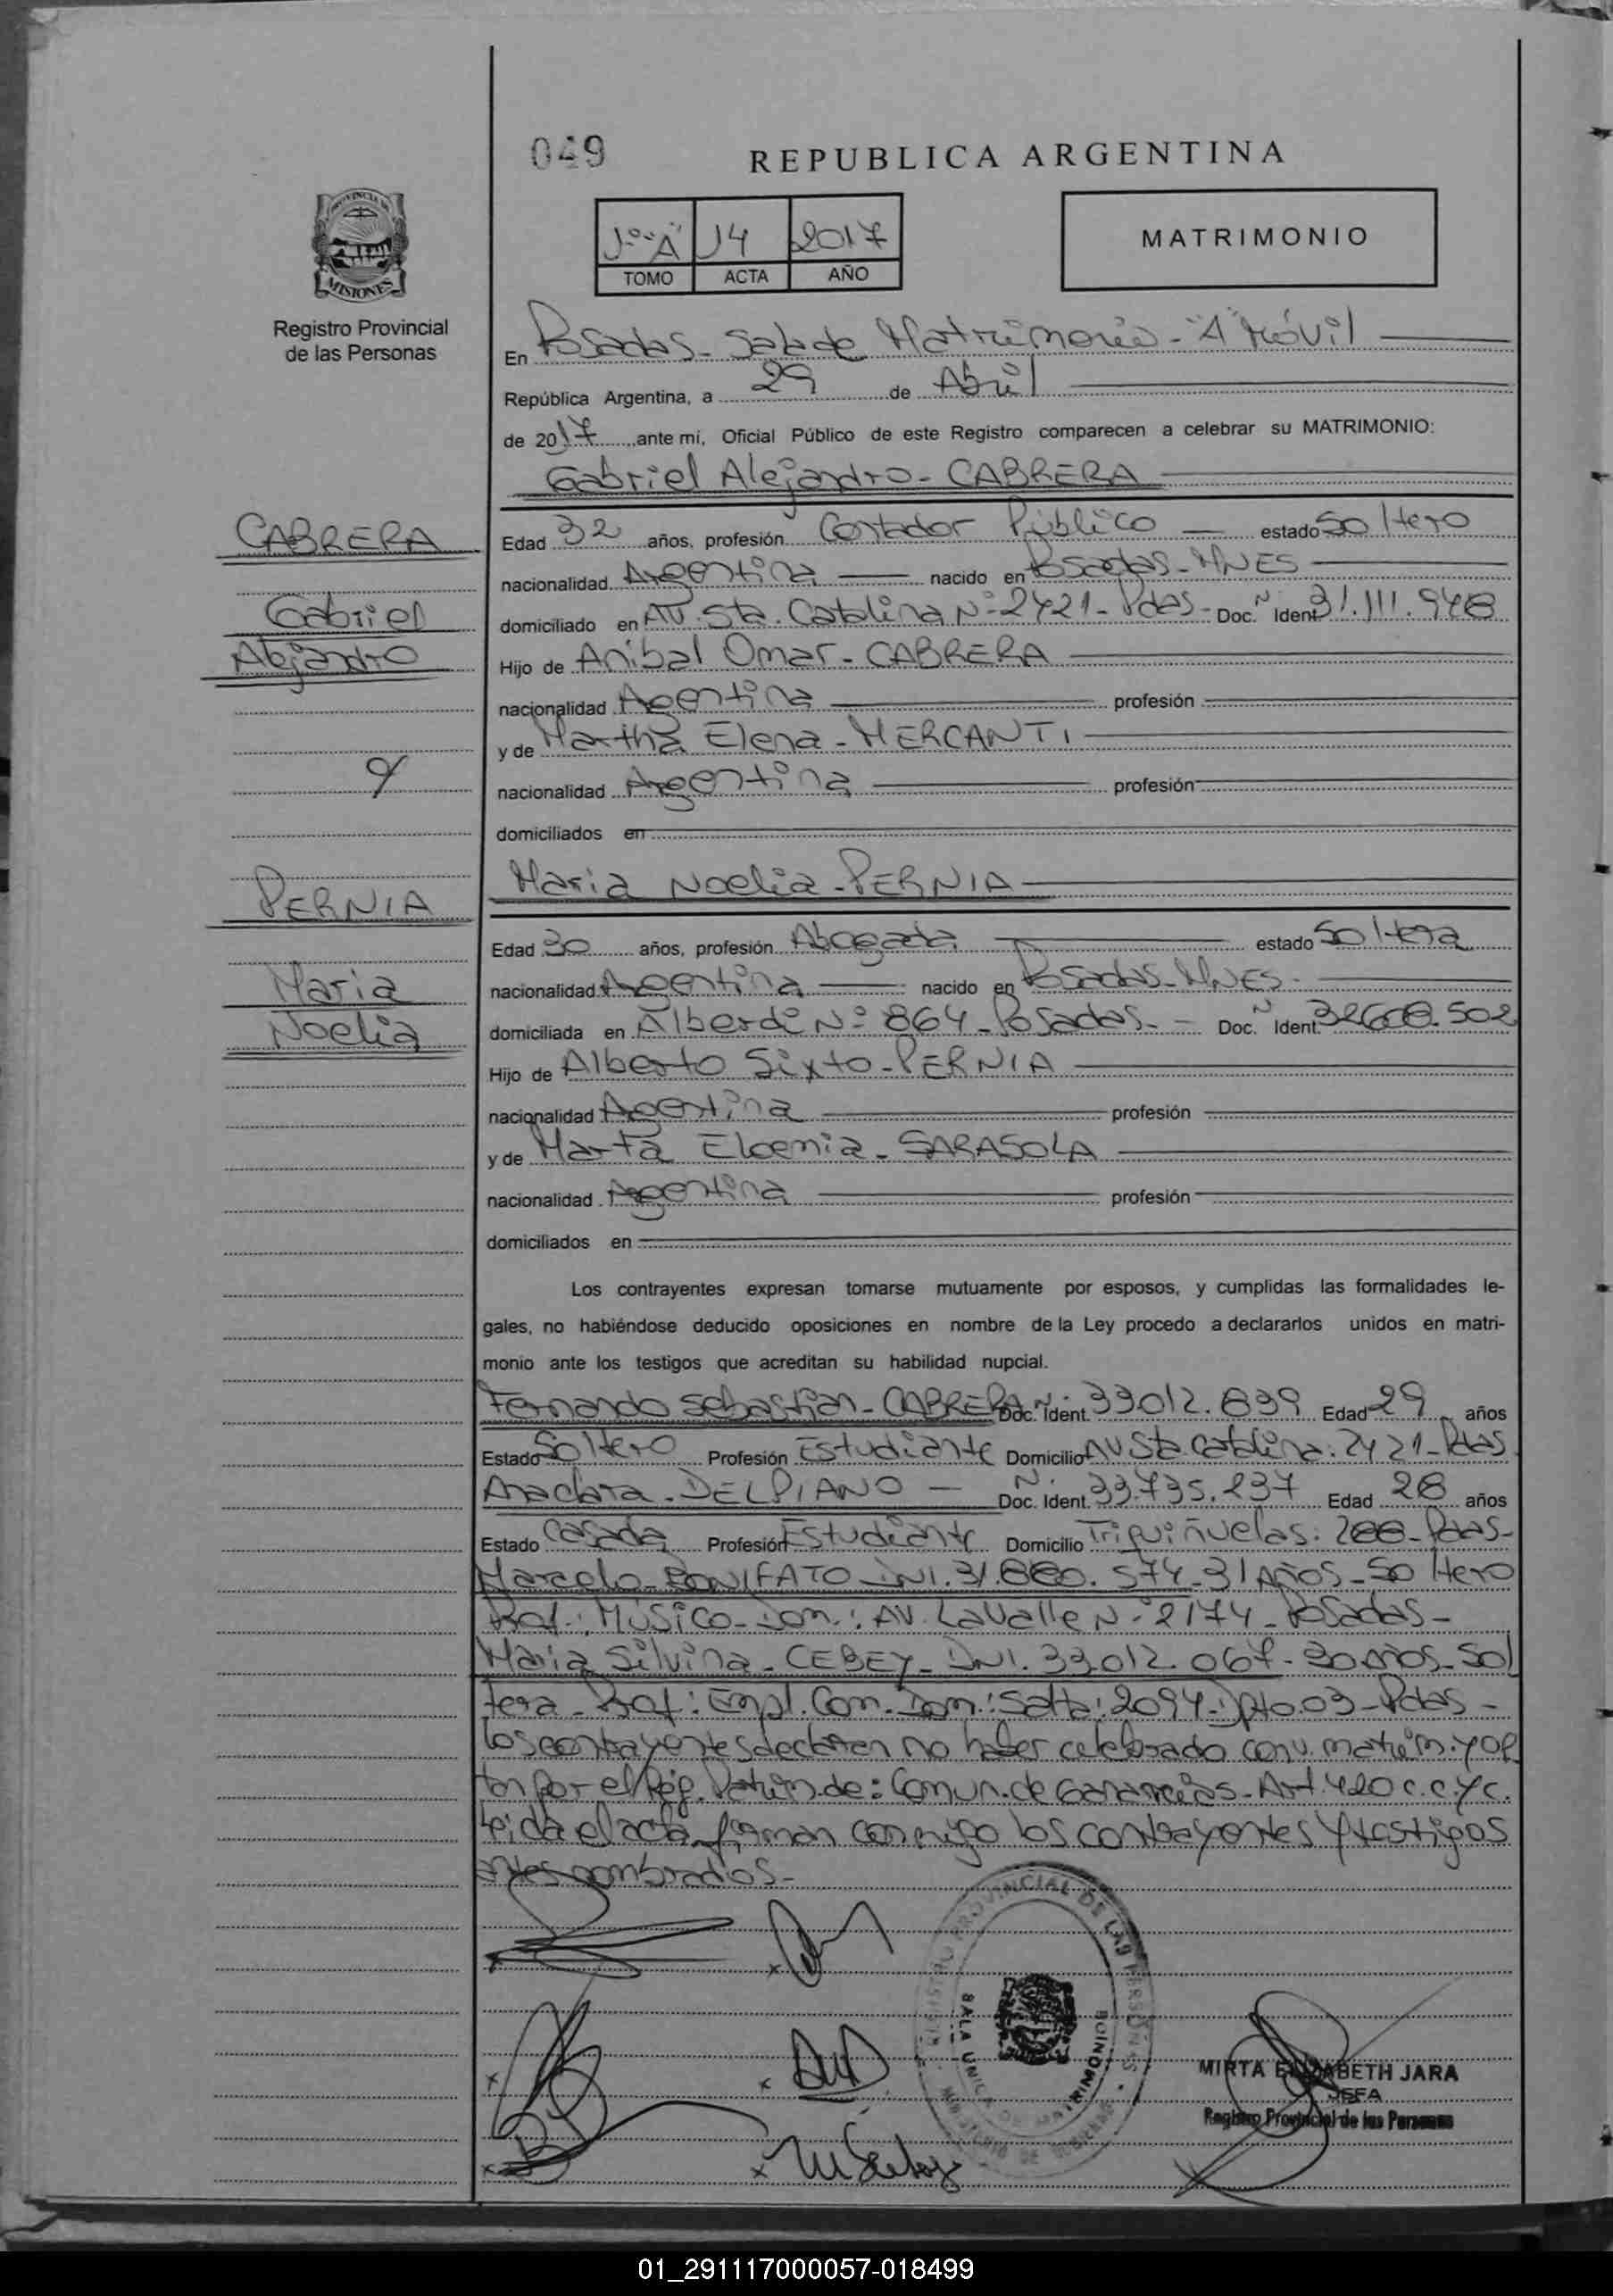 049
REPUBLICA ARGENTINA
PROVINCIA DE
MISIONES
Registro Provincial
de las Personas
1º "A" 14 2017
TOMO ACTA AÑO
MATRIMONIO
En Posadas - Sala de Matrimonio - "A" Móvil
República Argentina, a 29 de Abril
de 2017 ante mí, Oficial Público de este Registro comparecen a celebrar su MATRIMONIO:
Gabriel Alejandro - CABRERA
CABRERA
Gabriel
Alejandro
Edad 32 años, profesión Contador Público estado Soltero
nacionalidad Argentina nacido en Posadas - MNES
domiciliado en AV. Sta. Catalina Nº 2421 - Pdas - Doc. Nº Ident. 31.111.948
Hijo de Anibal Omar - CABRERA
nacionalidad Argentina profesión
y de Martha Elena - MERCANTI
nacionalidad Argentina profesión
domiciliados en
Maria Noelia - PERNIA
PERNIA
Maria
Noelia
Edad 30 años, profesión Abogada estado Soltera
nacionalidad Argentina nacido en Posadas - MNES -
domiciliada en Alberdi Nº 864 - Posadas - Doc. Nº Ident. 32.608.502
Hijo de Alberto Sixto - PERNIA
nacionalidad Argentina profesión
y de Marta - SARASOLA
nacionalidad Argentina profesión
domiciliados en
Los contrayentes expresan tomarse mutuamente por esposos, y cumplidas las formalidades le-
gales, no habiéndose deducido oposiciones en nombre de la Ley procedo a declararlos unidos en matri-
monio ante los testigos que acreditan su habilidad nupcial.
Fernando Sebastian - CABRERA Doc. Nº Ident. 33.012.839 Edad 29 años
Estado Soltero Profesión Estudiante Domicilio AV Sta. Catalina: 2421 - Pdas
Anaclara - DELPIANO - Doc. Nº Ident. 33.735.237 Edad 28 años
Estado Casada Profesión Estudiante Domicilio Triguiñuelas: 288 - Pdas -
Marcelo - BONIFATO - DNI. 31.880.574 - 31 Años - Soltero
Prof.: Músico - Dom.: AV. Lavalle Nº 2174 - Posadas -
Maria Silvina - CEBEY - DNI. 33.012.067 - 30 años - Sol
tera - Prof: Empl. Com. Dom.: Salta: 2094 - Dpto. 03 - Pdas -
los contrayentes declaran no haber celebrado conv. matrim. y op
tan por el Rég. Patrim. de: Comun. de Ganancias - Art. 420 c.c.yc.
Leida el acta firman conmigo los contrayentes y testigos
antes nombrados -
REGISTRO PROVINCIAL DE LAS PERSONAS
SALA UNICA DE MATRIMONIOS
MIRTA ELIZABETH JARA
JEFA
Registro Provincial de las Personas
01_291117000057-018499